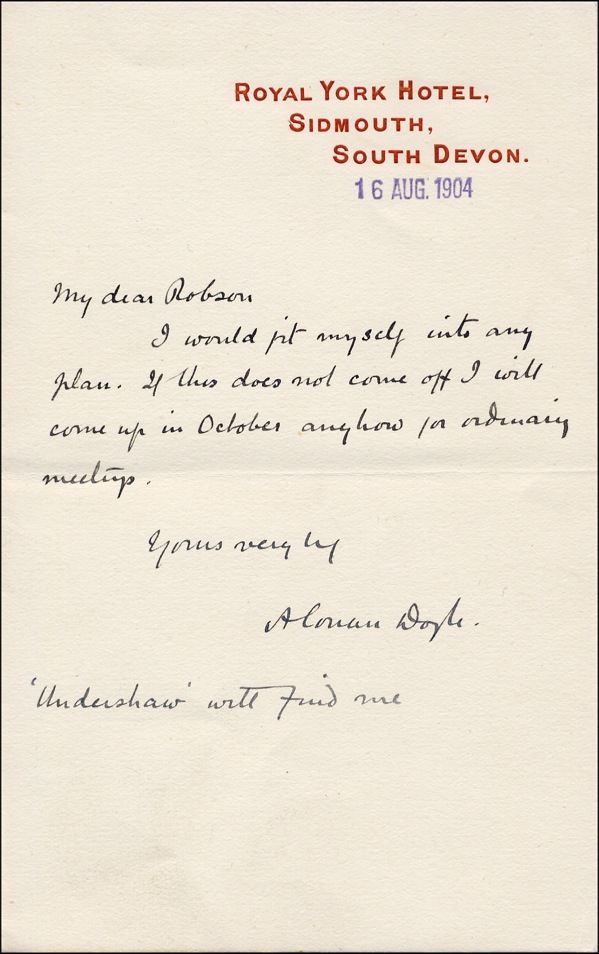 ROYAL YORK HOTEL,
SIDMOUTH,
SOUTH DEVON.
16 AUG. 1904
My dear Robson
I would fit myself into any
plan. If this does not come off I will
come up in October anyhow for ordinary
meetings.
Yours very try
A Conan Doyle.
'Undershaw' will find me